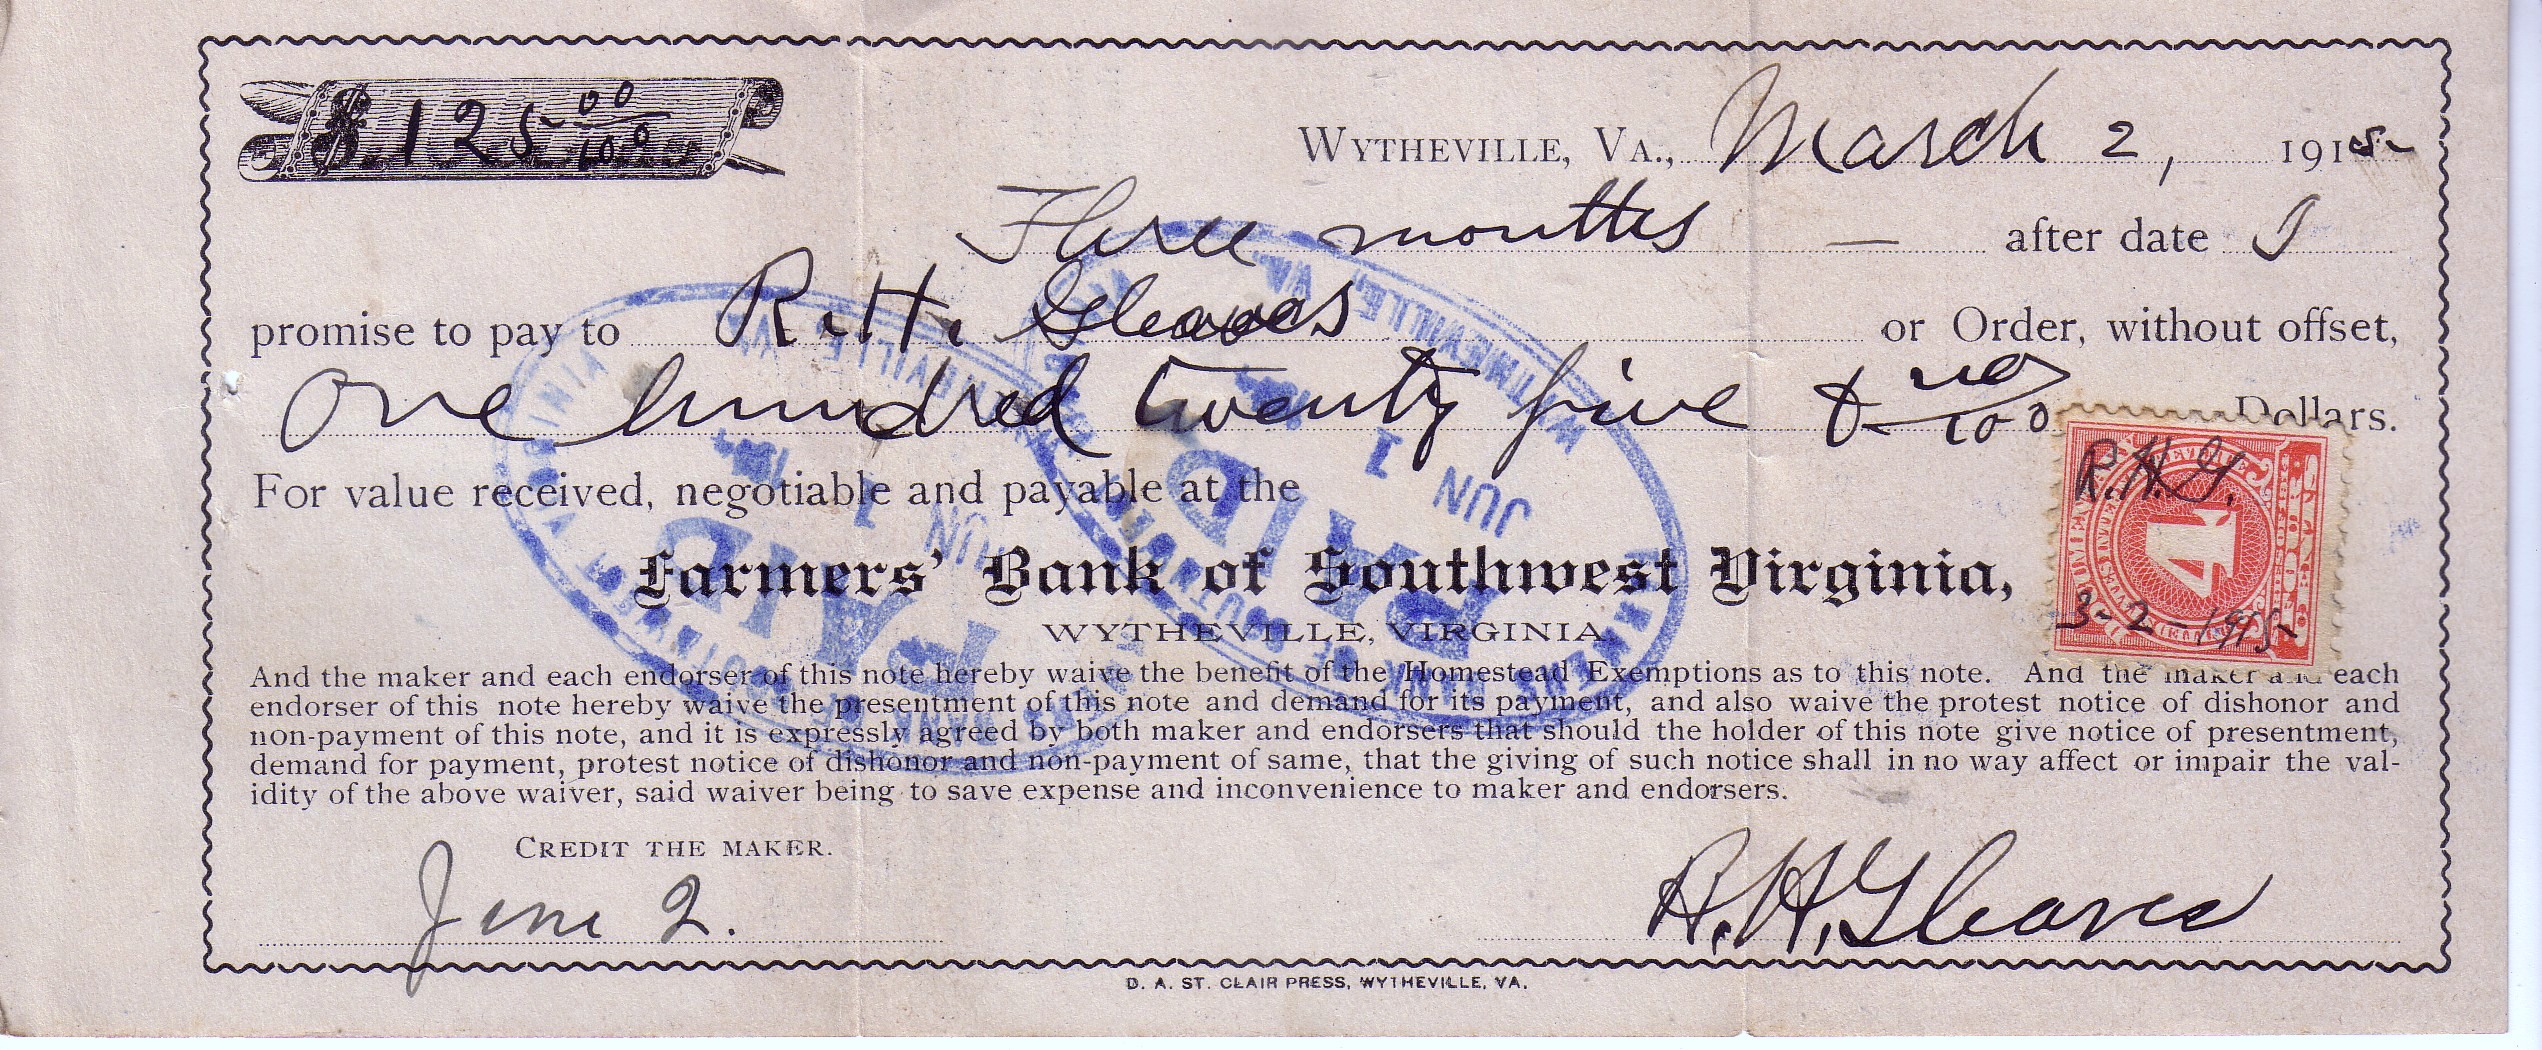 $ 125 00/100
WYTHEVILLE, VA., March 2, 1915
Three months — after date I
promise to pay to R. H. Gleaves or Order, without offset,
One hundred twenty five & no/100 Dollars.
For value received, negotiable and payable at the
Farmers' Bank of Southwest Virginia,
WYTHEVILLE, VIRGINIA.
And the maker and each endorser of this note hereby waive the benefit of the Homestead Exemptions as to this note. And the maker and each
endorser of this note hereby waive the presentment of this note and demand for its payment, and also waive the protest notice of dishonor and
non-payment of this note, and it is expressly agreed by both maker and endorsers that should the holder of this note give notice of presentment,
demand for payment, protest notice of dishonor and non-payment of same, that the giving of such notice shall in no way affect or impair the val-
idity of the above waiver, said waiver being to save expense and inconvenience to maker and endorsers.
CREDIT THE MAKER.
June 2.
R. H. Gleaves
D. A. ST. CLAIR PRESS, WYTHEVILLE, VA.
R. H. G.
4
3-2-1915
PAID
JUN 1
WYTHEVILLE, VA.
PAID
JUN 1